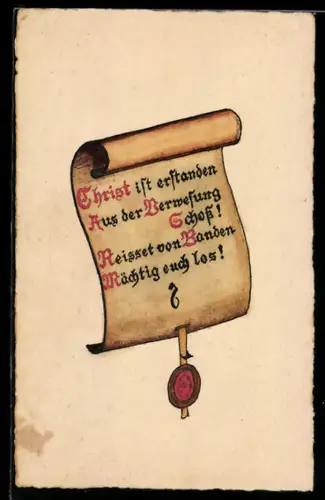 Christ ist erstanden
Aus der Verwesung
Schoß!
Reisset von Banden
Mächtig euch los!